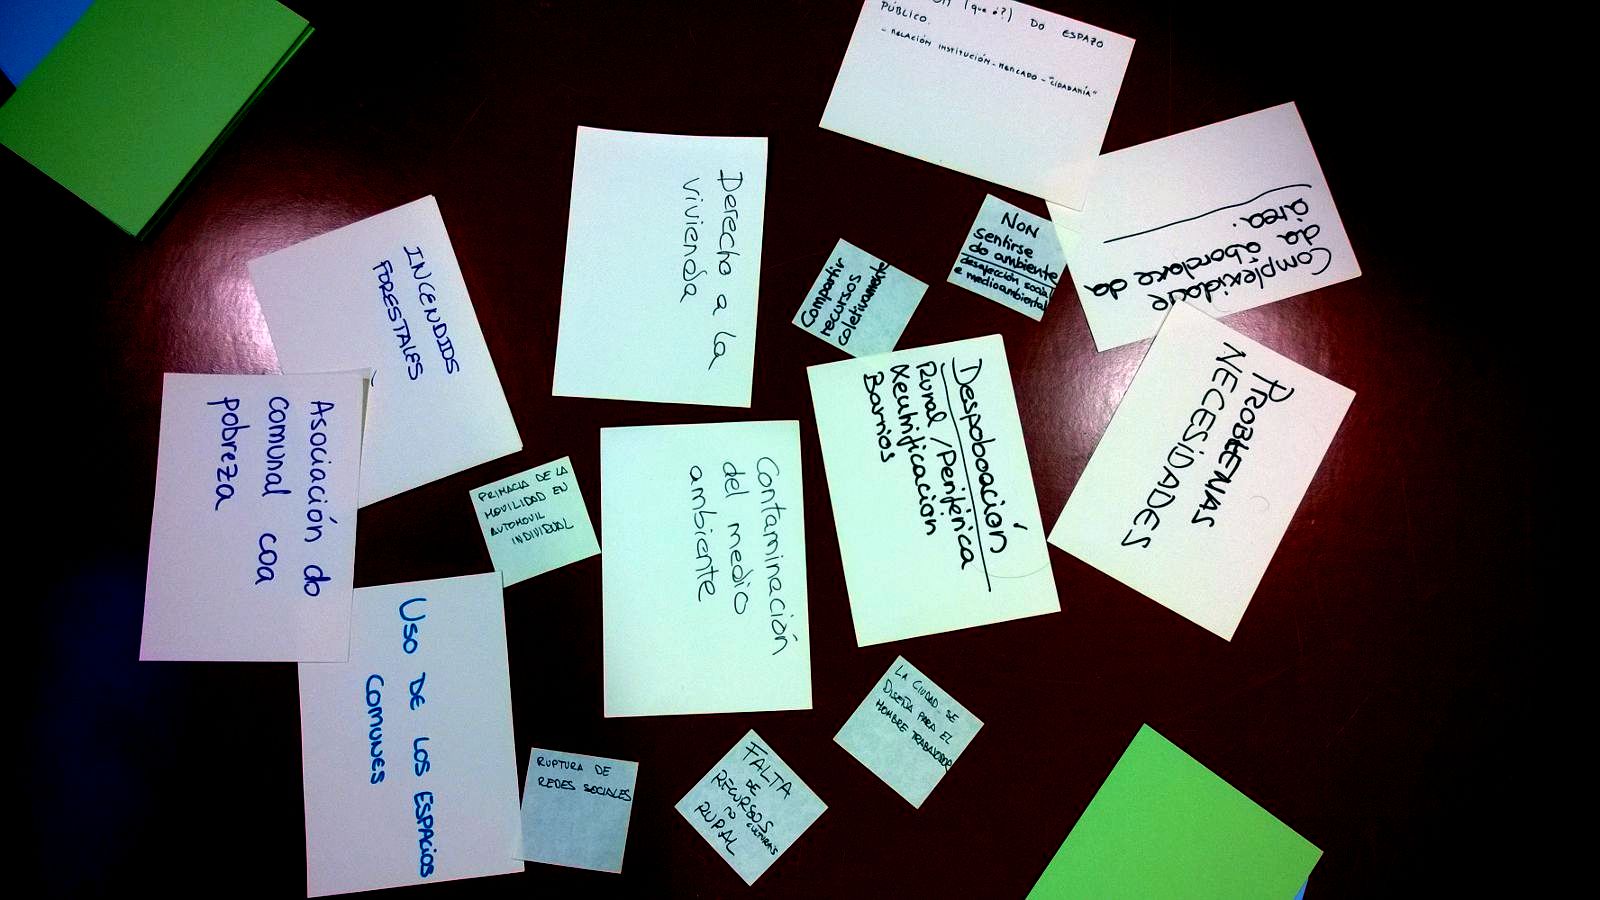 (que é?) DO ESPAZO
PÚBLICO.
- RELACIÓN INSTITUCIÓN - MERCADO - "CIDADANÍA"
Complexidade
da abordaxe da
área.
NON
sentirse
do ambiente
desafección social
e medioambiental
Compartir
recursos
coletivamente
Derecho a la
vivienda
INCENDIOS
FORESTALES
PROBLEMAS
NECESIDADES
Despoboación
Rural / Periférica
Xentrificación
Barrios
Asociación do
comunal coa
pobreza
PRIMACIA DE LA
MOVILIDAD EN
AUTOMOVIL
INDIVIDUAL
Contaminación
del medio
ambiente
USO DE LOS ESPACIOS
COMUNES
LA CIUDAD SE
DISEÑA PARA EL
HOMBRE TRABAJADOR
FALTA
DE
RECURSOS
NO
RURAL
RUPTURA DE
REDES SOCIALES